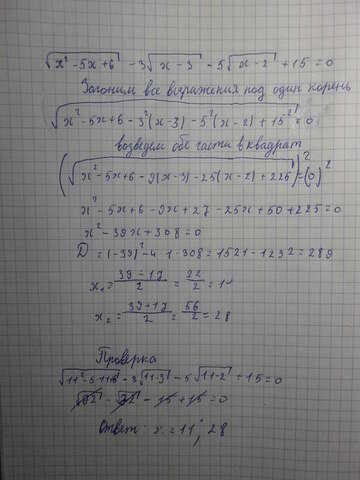 √(x² - 5x + 6) - 3√(x - 3) - 5√(x - 2) + 15 = 0
Загоним все выражения под один корень
√(x² - 5x + 6 - 3²(x - 3) - 5²(x - 2) + 15²) = 0
возведем обе части в квадрат
(√(x² - 5x + 6 - 9(x - 3) - 25(x - 2) + 225))² = (0)²
x² - 5x + 6 - 9x + 27 - 25x + 50 + 225 = 0
x² - 39x + 308 = 0
D = (-39)² - 4 · 1 · 308 = 1521 - 1232 = 289
x₁ = (39 - 17)/2 = 22/2 = 11
x₂ = (39 + 17)/2 = 56/2 = 28
Проверка
√(11² - 5·11+6) - 3√(11-3) - 5√(11-2) + 15 = 0
√72 - √72 - 15 + 15 = 0
Ответ: x = 11; 28